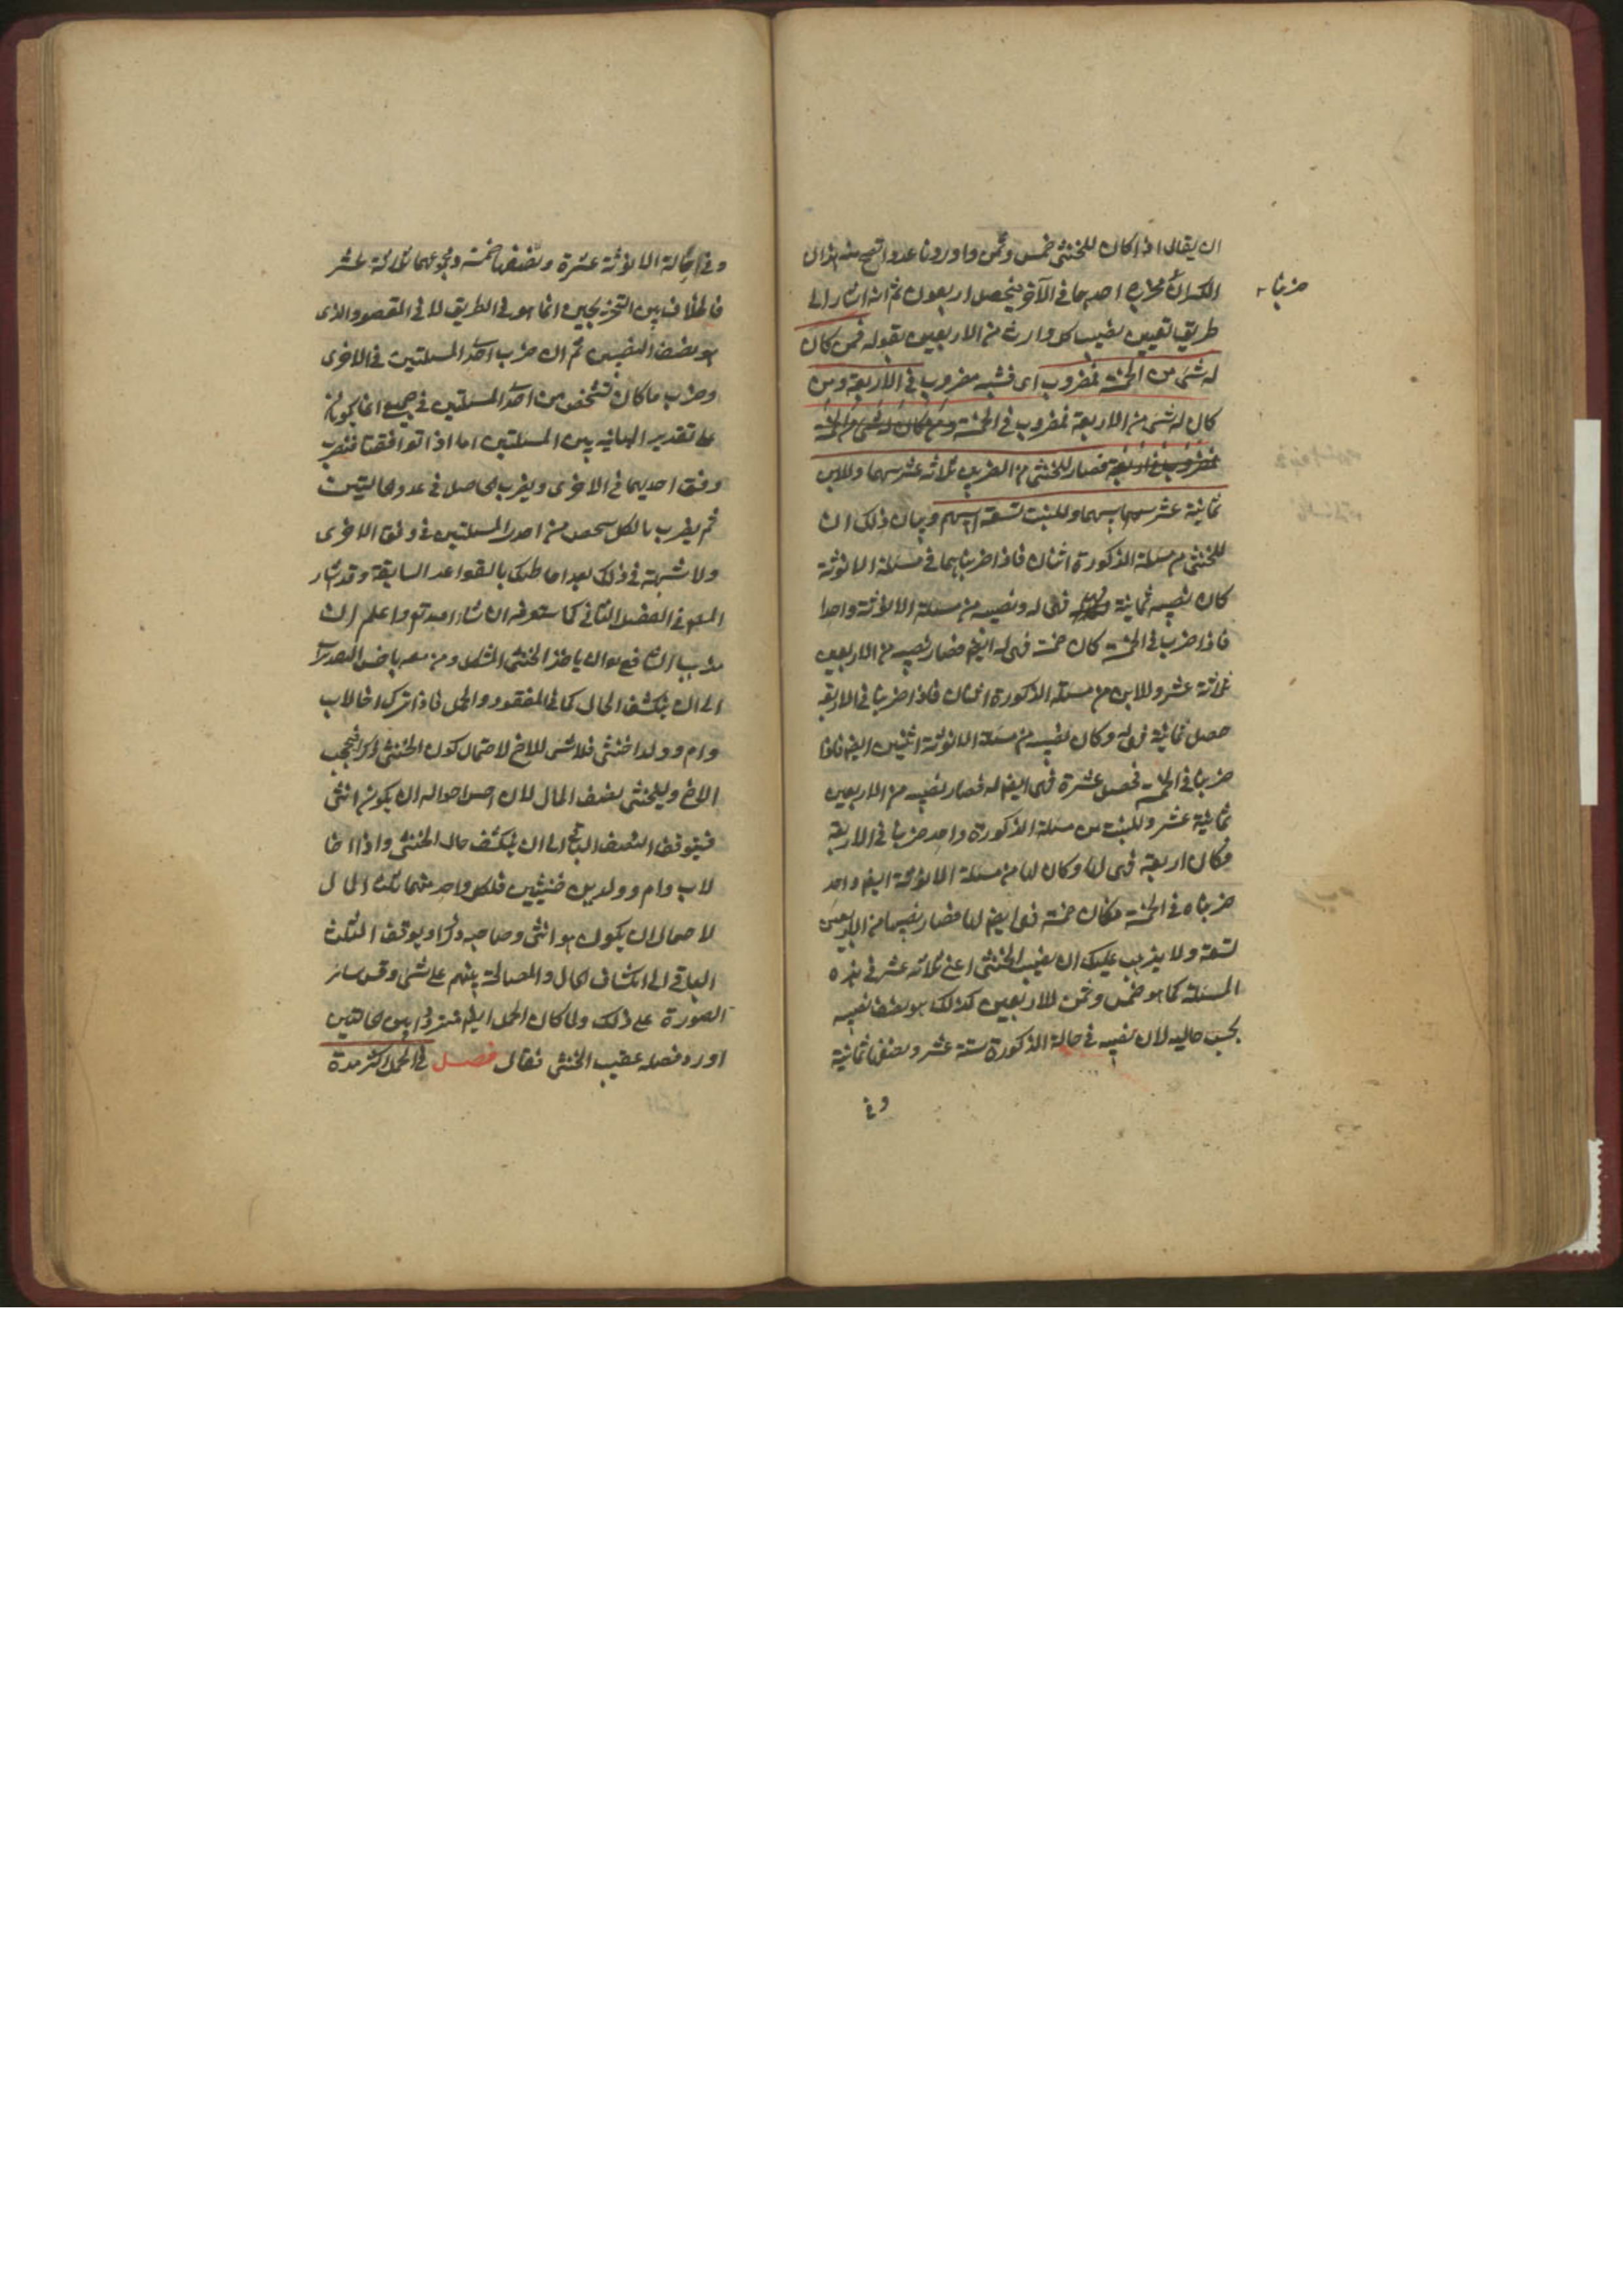 ان يقال اذا كان للخنثى خمس وثمن واوردنا عددا تصح منه هذان
الكسران مخرج احدهما في الآخر فيحصل اربعون ثم انه اشار الى
ضربنا
طريق تعيين نصيب كل وارث من الاربعين بقوله فمن كان
له شئ من الخمسة فمضروب اى فشيه مضروب في الاربعة ومن
كان له شئ من الاربعة فمضروب في الخمسة ومن كان له شئ من الخمسة
فمضروب في اربعة فصار للخنثى من الضربين ثلاثه عشر سهما وللابن
ثمانية عشر سهما وللبنت تسعة اسهم وبيان ذلك ان
للخنثى من مسئلة الذكورة اثنان فاذا ضربناهما في مسئلة الانوثة
كان نصيبه ثمانية فهى له ونصيبه من مسئلة الانوثة واحدا
فاذا ضرب في الخمسة كان خمسة فهى له ايضا فصار نصيبه من الاربعين
ثلاثة عشر وللابن من مسئلة الذكورة اثنان فاذا ضربنا في الاربعة
حصل ثمانية فهى له وكان نصيبه من مسئلة الانوثة اثنين ايضا فاذا
ضربنا في الخمسة فحصل عشرة فهى ايضا له فصار نصيبه من الاربعين
ثمانية عشر وللبنت من مسئلة الذكورة واحد ضربنا في الاربعة
فكان اربعة فهى لها وكان لها من مسئلة الانوثة ايضا واحد
ضربناه في الخمسة فكان خمسة فهى ايضا لها فصار نصيبها من الاربعين
تسعة ولا يذهب عليك ان نصيب الخنثى اعنى ثلاثه عشر في هذه
المسئلة كما هو خمس وثمن للاربعين كذلك هو نصف نصيبه
بحسب حاليه لان نصيبه في حالة الذكورة ستة عشر ونصفها ثمانية
وفى
وفى حالة الانوثة عشرة ونصفها خمسة ومجموعهما ثلاثة عشر
فالخلاف بين التخريجين انما هو في الطريق لا في المقصود الذى
هو نصف النصيبين ثم ان ضرب احد المسئلتين في الاخرى
وضرب ما كان لشخص من احد المسئلتين في جميع انما يكون
على تقدير المباينه بين المسئلتين اما اذا توافقتا فنضرب
وفق احديهما في الاخرى ويضرب الحاصل في عدد الحالتين
ثم يضرب ما لكل شخص من احدى المسئلتين في وفق الاخرى
ولا شبهة في ذلك بعد احاطتك بالقواعد السابقة وقد اشار
المص في الفصل الثانى كما ستعرفه ان شاء الله تع واعلم ان
مذهب الشافعى هو ان ياخذ الخنثى المشكل ومن معه باخس التقديرات
الى ان ينكشف الحال كما في المفقود والحمل فاذا ترك اخا لاب
وام وولدا خنثى فلا شئ للاخ لاحتمال كون الخنثى ذكرا فيحجب
الاخ وللخنثى نصف المال لان اخس احواله ان يكون انثى
فيتوقف النصف الباقى الى ان ينكشف حال الخنثى واذا اخا
لاب وام وولدين خنثيين فلكل واحد منهما ثلث المال
لاحتمال ان يكون هو انثى وصاحبه ذكرا ويوقف الثلث
الباقى الى انكشاف الحال والمصالحة بينهم على شئ وقس سائر
الصورة على ذلك ولما كان الحمل ايضا مترددا بين حالتين
اورد فصله عقيب الخنثى فقال فصل في الحمل اكثر مدة